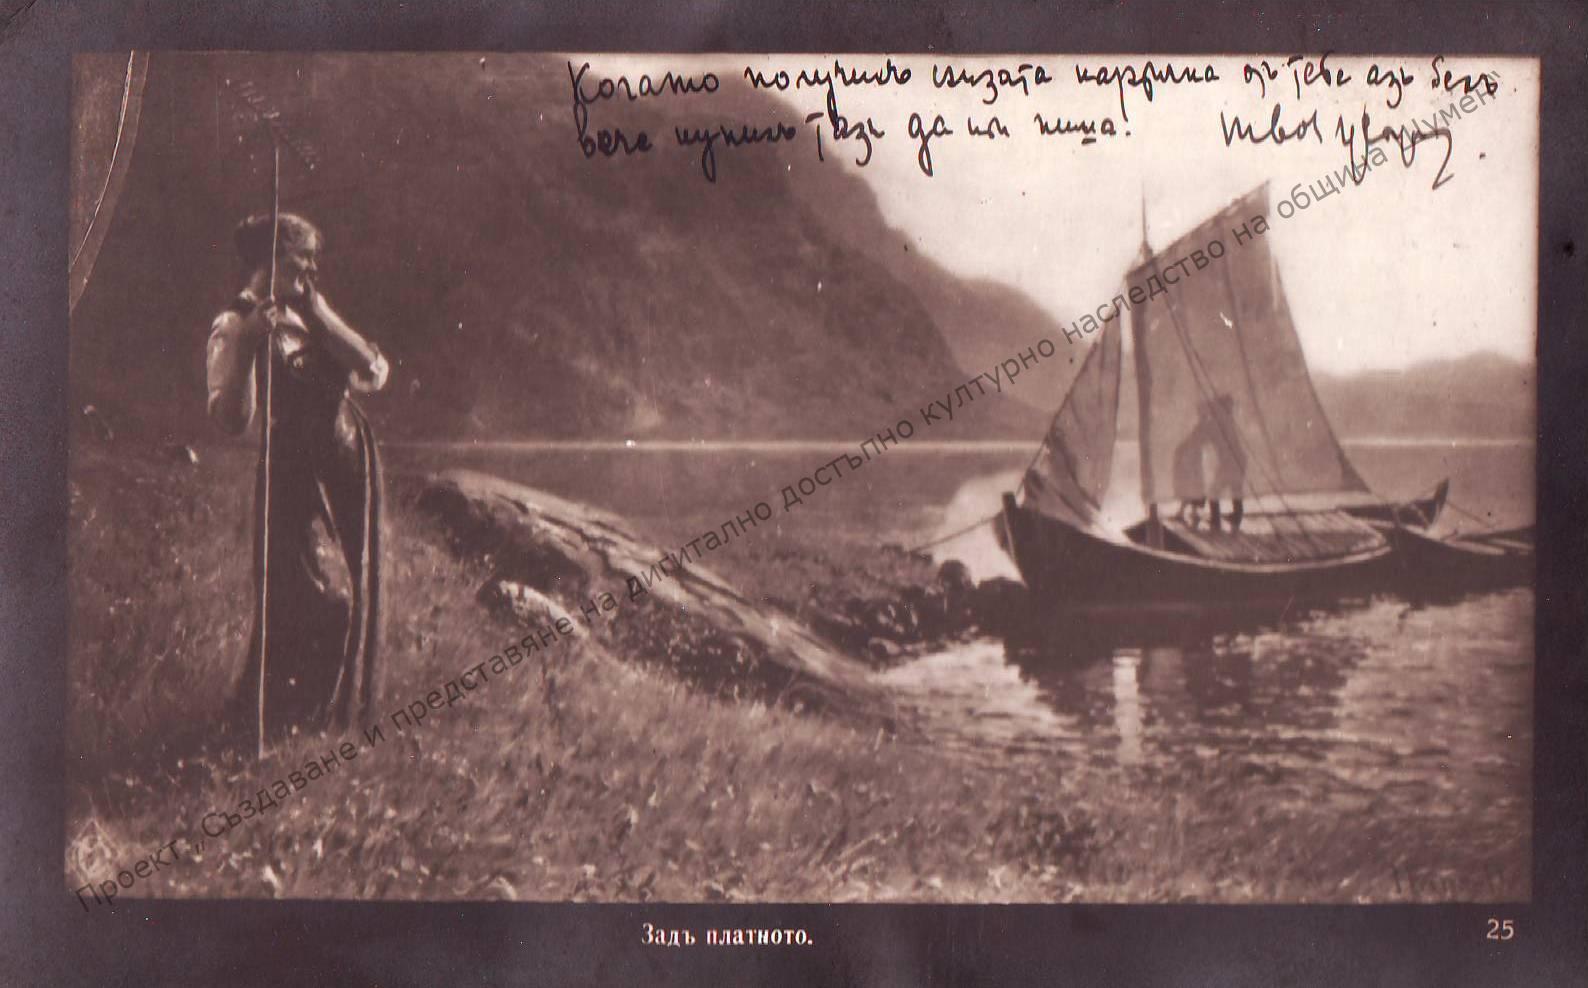 Когато получихъ снизата картичка отъ тебе азъ бехъ
вече купилъ тазъ да ти пиша. твоя
Проект „Създаване и представяне на дигитално достъпно културно наследство на община Шумен“
Задъ платното.
25